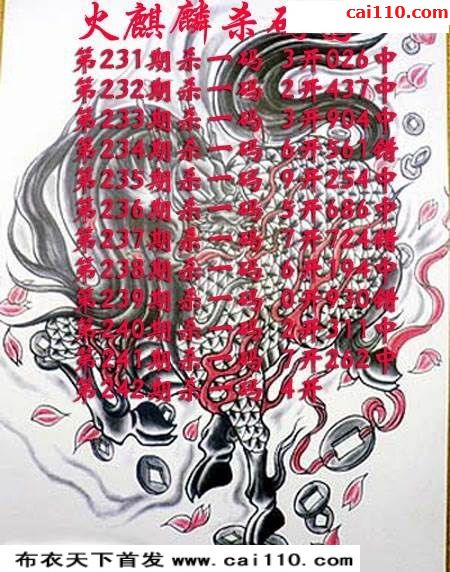 cai110.com
火麒麟杀码
第231期杀一码 3开026中
第232期杀一码 2开437中
第233期杀一码 3开904中
第234期杀一码 6开561错
第235期杀一码 9开254中
第236期杀一码 5开686中
第237期杀一码 7开724错
第238期杀一码 6开194中
第239期杀一码 0开930错
第240期杀一码 2开311中
第241期杀一码 7开262中
第242期杀一码 4开
布衣天下首发 www.cai110.com